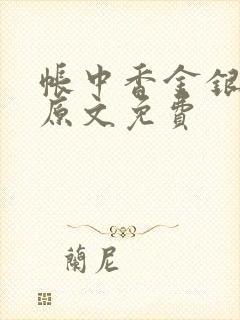 帳中香金銀
原文免費
蘭尼